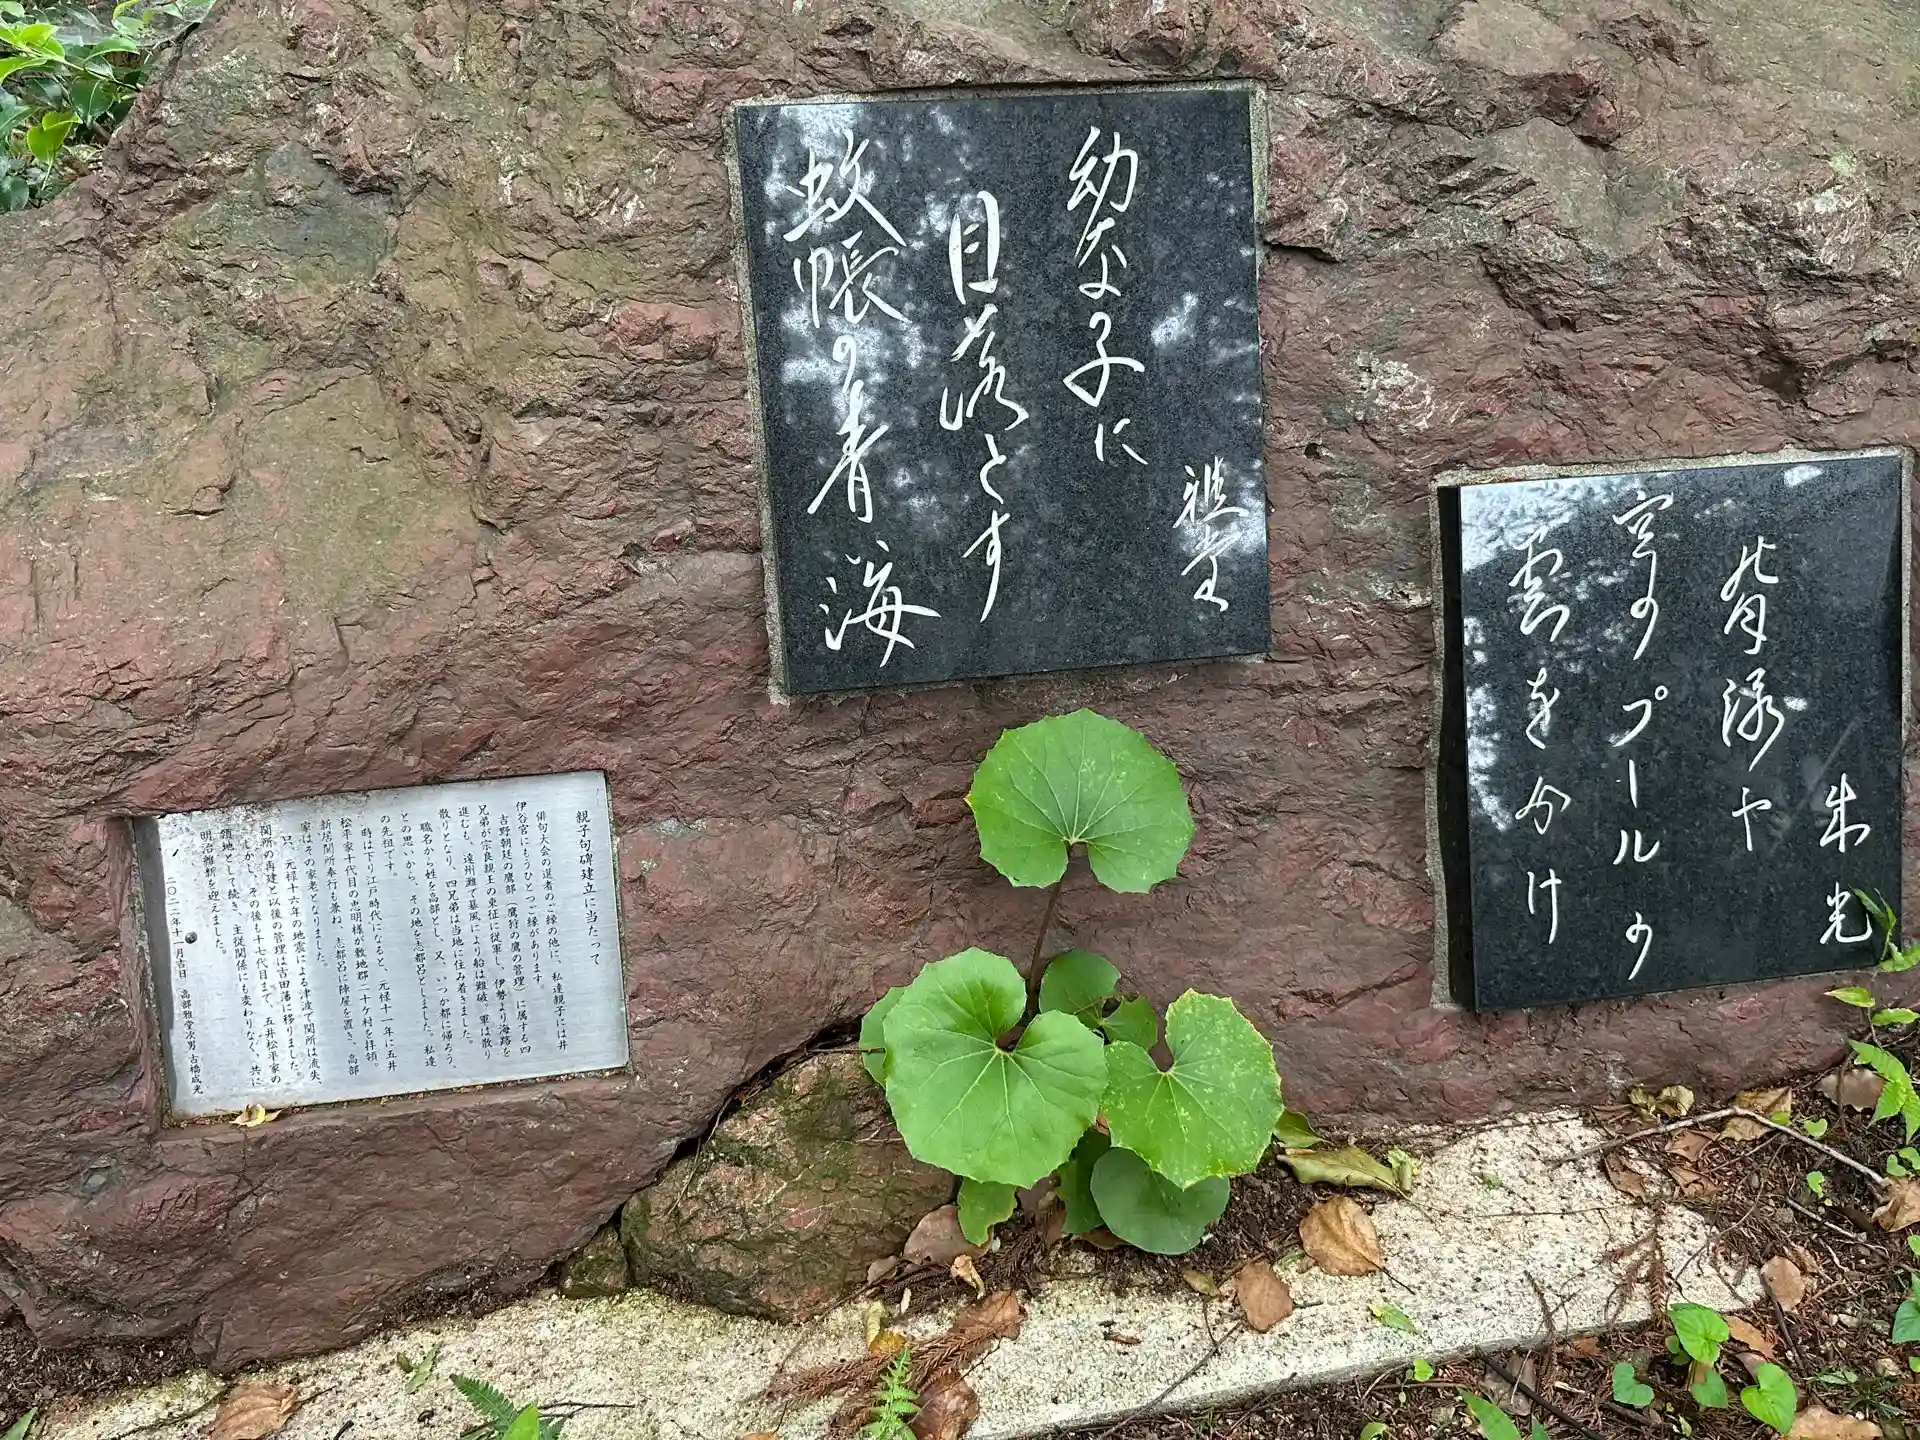 雅堂
幼な子に
目落とす
蚊帳の青海
成光
背泳や
空のプールの
雲をかけ
親子句碑建立に当たって
俳句大会の選者のご縁の他に、私達親子には井
伊谷宮にもうひとつご縁があります。
吉野朝廷の鷹部(鷹狩の鷹の管理)に属する四
兄弟が宗良親王の東征に従軍し、伊勢より海路を
進むも、遠州灘で暴風により船は難破。軍は散り
散りとなり、四兄弟は当地に住み着きました。
職名から姓を高部とし、又、いつか都に帰ろう、
との思いから、その地を志都呂としました。私達
の先祖です。
時は下り江戸時代になると、元禄十一年に五井
松平家十代目の忠明様が敷地郡二十ケ村を拝領。
新居関所奉行も兼ね、志都呂に陣屋を置き、高部
家はその家老となりました。
只、元禄十六年の地震による津波で関所は流失、
関所の再建と以後の管理は吉田藩に移りました。
しかし、その後も十七代目まで、五井松平家の
領地として続き、主従関係にも変わりなく、共に
明治維新を迎えました。
二〇二二年十一月吉日 高部雅堂次男 古橋成光